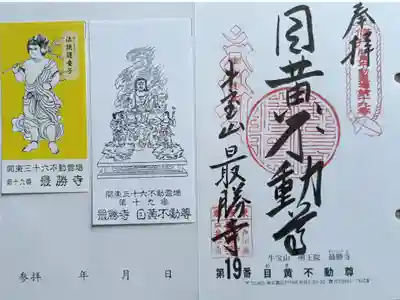 法挾護童子
関東三十六不動霊場
第十九番 最勝寺
関東三十六不動霊場
第十九番
最勝寺 目黄不動尊
参拝 年 月 日
奉拝
目黄不動尊
牛宝山 最勝寺
牛宝山 明王院 最勝寺
第19番 目黄不動尊